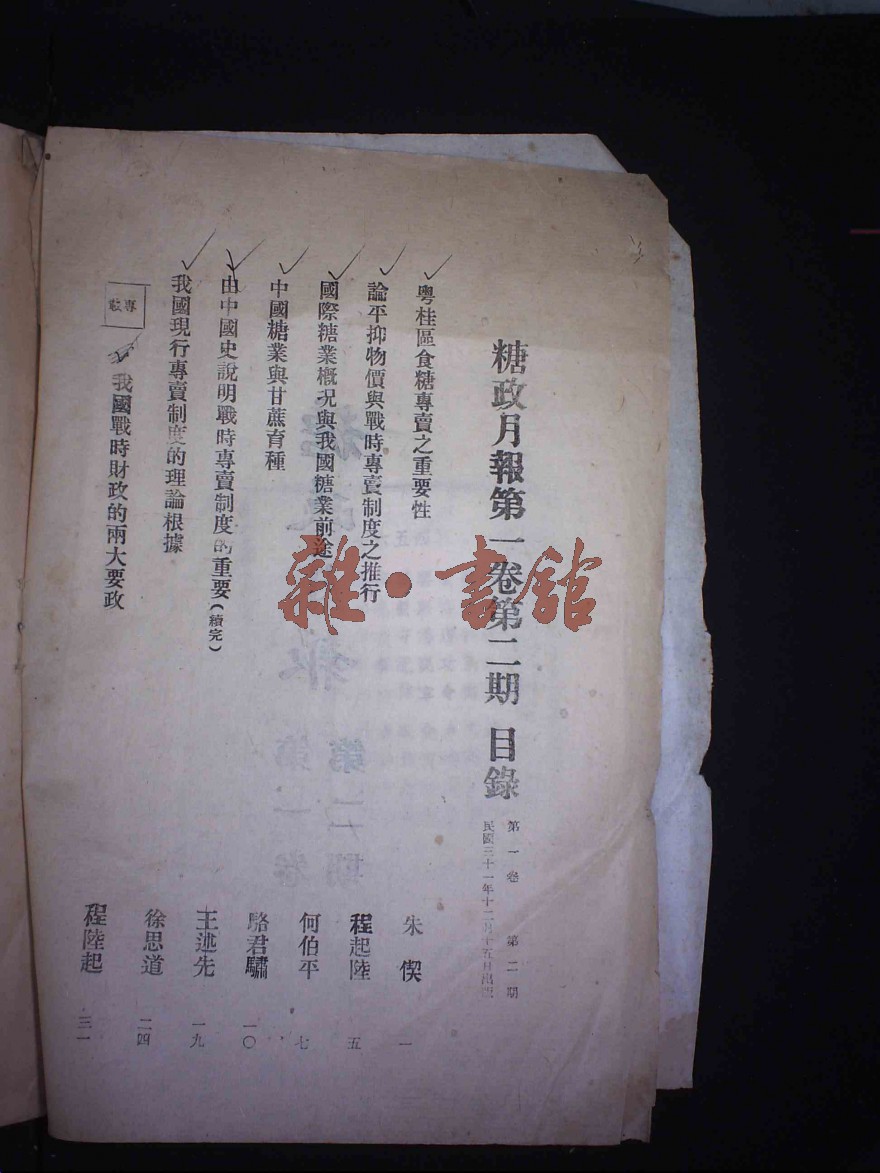 糖政月報第一卷第二期 目錄
第一卷 第二期
民國三十一年十二月十五日出版
粵桂區食糖專賣之重要性 朱偰 一
論平抑物價與戰時專賣制度之推行 程起陸 五
國際糖業概況與我國糖業前途 何伯平 七
中國糖業與甘蔗育種 駱君驌 一〇
由中國史說明戰時專賣制度的重要(續完) 王述先 一九
我國現行專賣制度的理論根據 徐思道 二四
專載
我國戰時財政的兩大要政 程陸起 三一
雜·書館